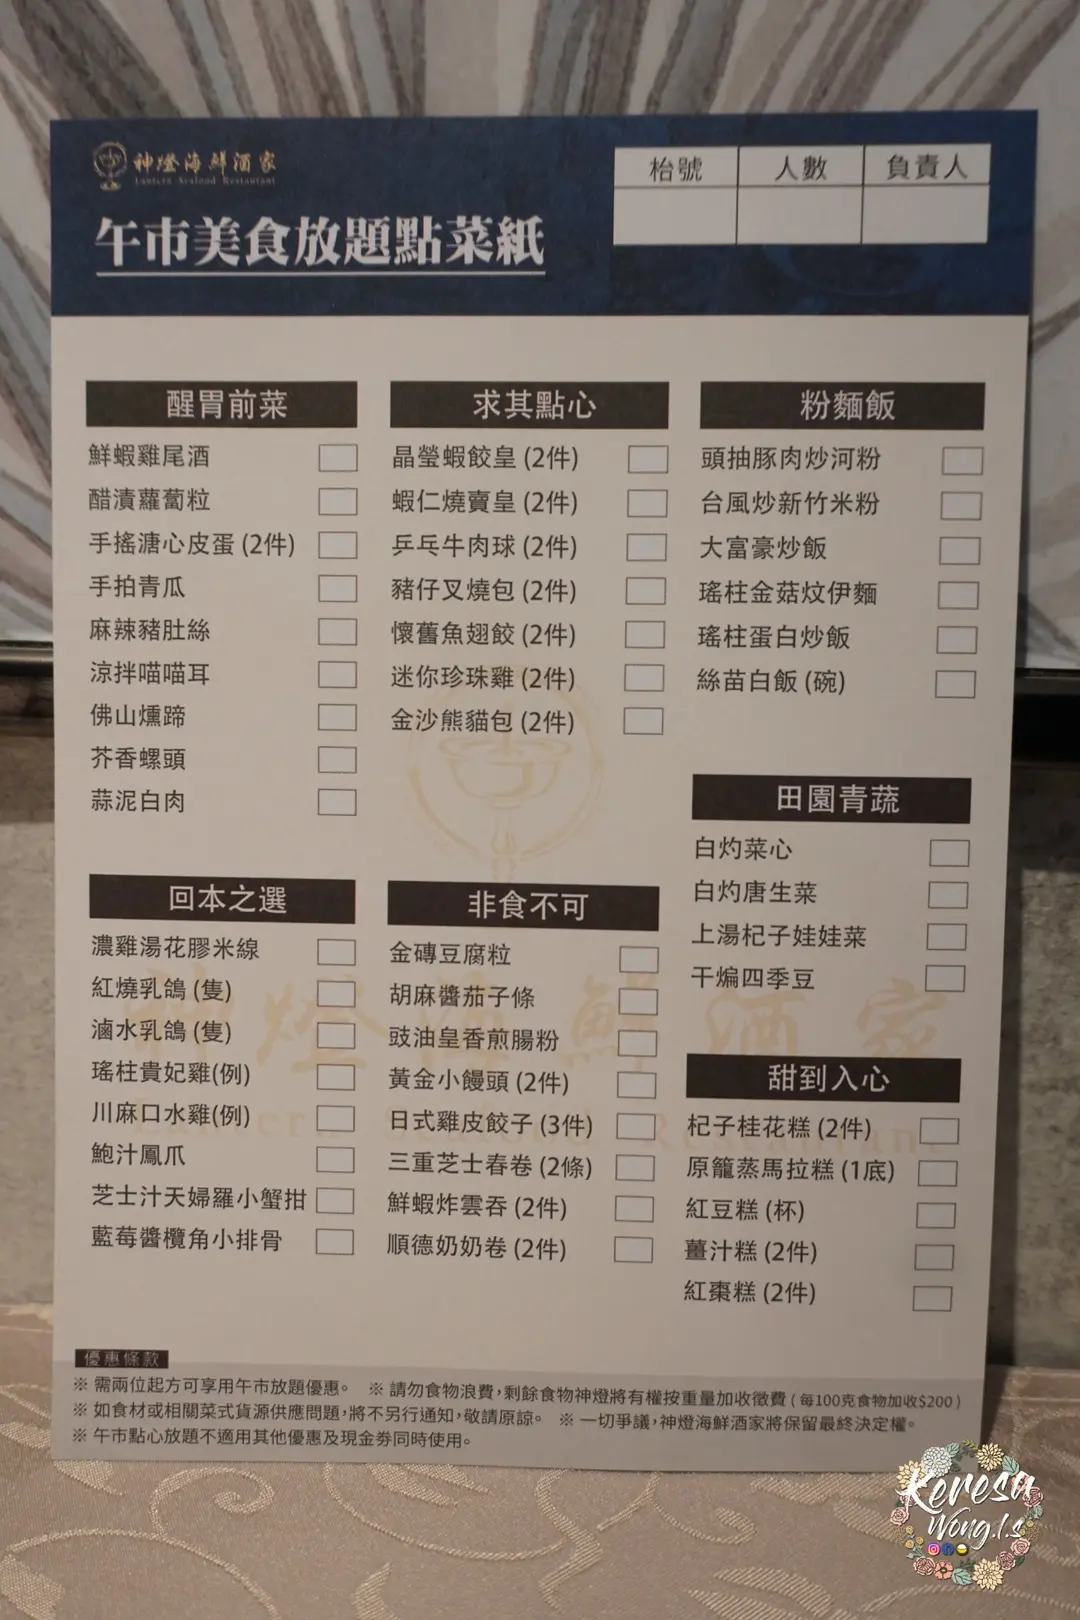 神燈海鮮酒家
Lantern Seafood Restaurant
午市美食放題點菜紙
枱號 人數 負責人
醒胃前菜
鮮蝦雞尾酒
醋漬蘿蔔粒
手搖溏心皮蛋 (2件)
手拍青瓜
麻辣豬肚絲
涼拌喵喵耳
佛山燻蹄
芥香螺頭
蒜泥白肉
求其點心
晶瑩蝦餃皇 (2件)
蝦仁燒賣皇 (2件)
乒乓牛肉球 (2件)
豬仔叉燒包 (2件)
懷舊魚翅餃 (2件)
迷你珍珠雞 (2件)
金沙熊貓包 (2件)
粉麵飯
頭抽豚肉炒河粉
台風炒新竹米粉
大富豪炒飯
瑤柱金菇炆伊麵
瑤柱蛋白炒飯
絲苗白飯 (碗)
田園青蔬
白灼菜心
白灼唐生菜
上湯杞子娃娃菜
干煸四季豆
回本之選
濃雞湯花膠米線
紅燒乳鴿 (隻)
滷水乳鴿 (隻)
瑤柱貴妃雞(例)
川麻口水雞(例)
鮑汁鳳爪
芝士汁天婦羅小蟹拑
藍莓醬欖角小排骨
非食不可
金磚豆腐粒
胡麻醬茄子條
豉油皇香煎腸粉
黃金小饅頭 (2件)
日式雞皮餃子 (3件)
三重芝士春卷 (2條)
鮮蝦炸雲吞 (2件)
順德奶奶卷 (2件)
甜到入心
杞子桂花糕 (2件)
原籠蒸馬拉糕 (1底)
紅豆糕 (杯)
薑汁糕 (2件)
紅棗糕 (2件)
神燈海鮮酒家
Lantern Seafood Restaurant
優惠條款
※ 需兩位起方可享用午市放題優惠。 ※ 請勿食物浪費，剩餘食物神燈將有權按重量加收徵費 ( 每100克食物加收$200 )
※ 如食材或相關菜式貨源供應問題，將不另行通知，敬請原諒。 ※ 一切爭議，神燈海鮮酒家將保留最終決定權。
※ 午市點心放題不適用其他優惠及現金券同時使用。
Keresa
Wong.l.s